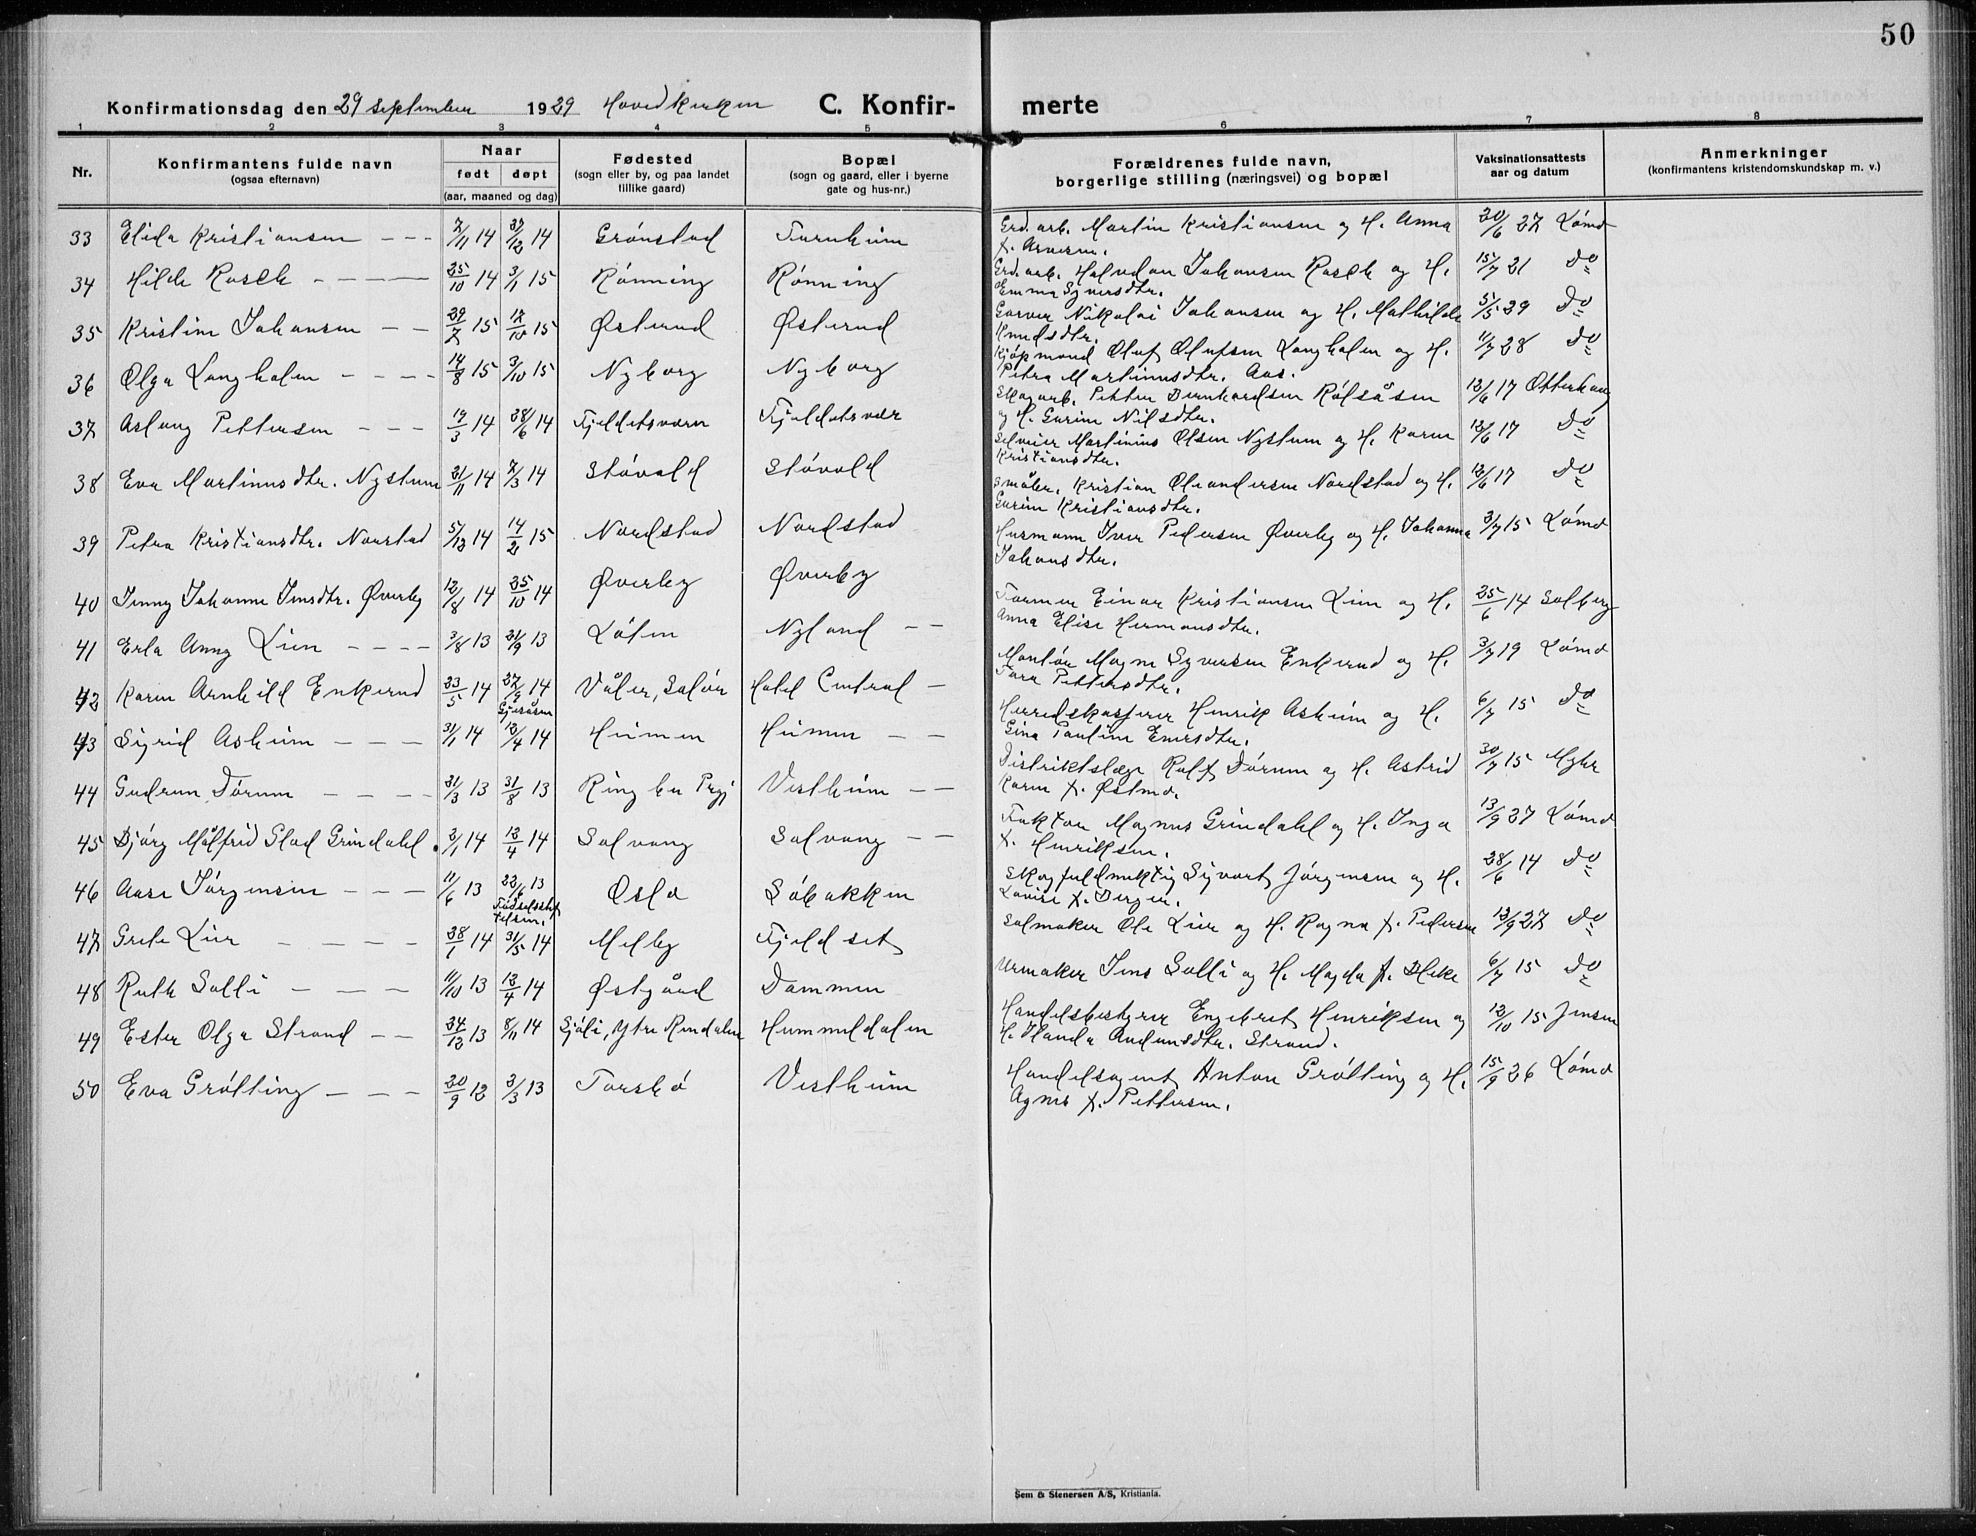 50
Konfirmationsdag den 29 september 1929 Hovedkirken C. Konfir-
merte
1 2 3 4 5 6 7 8
Nr.
Konfirmantens fulde navn
(ogsaa efternavn)
Naar
født døpt
(aar, maaned og dag)
Fødested
(sogn eller by, og paa landet
tillike gaard)
Bopæl
(sogn og gaard, eller i byerne
gate og hus-nr.)
Forældrenes fulde navn,
borgerlige stilling (næringsvei) og bopæl
Vaksinationsattests
aar og datum
Anmerkninger
(konfirmantens kristendomskundskap m. v.)
33 Elida Kristiansen - - - 7/11 14 27/12 14 Grønstad Furuheim
Grd. arb. Martin Kristiansen og H. Anna 20/6 27 Lømo
f. Arnesen.
34 Hilde Rasch - - - - 25/10 14 3/1 15 Rønning Rønning
Grd. arb. Halvdan Johansen Rasch og H. 15/7 21 Do
Emma Syversdtr.
35 Kristine Johansen - - 29/7 15 17/10 15 Østerud Østerud
Garver Nikolai Johansen og H. Mathilde 5/5 29 Do
Knudsdtr.
36 Olga Langholm - - - - 14/8 15 3/10 15 Nyborg Nyborg
Kjøpmand Oluf Olufsen Langholm og H. 11/7 28 Do
Petra Martinusdtr. Aas.
37 Aslaug Pettersen - - - 19/3 14 28/6 14 Fjeldetsvæen Fjeldetsvær
Skogarb. Petter Bernhardsen Rølsåsen 12/6 17 Otterhaug
og H. Gurine Nilsdtr.
38 Eva Martinusdtr. Nystuen 21/11 14 7/3 14 Støvold Støvold
Selveier Martinius Olsen Nystuen og H. Karen 12/6 17 Do
Kristiansdtr.
39 Petra Kristiansdtr. Norstad 5/12 14 14/2 15 Nordstad Nordstad
Småbr. Kristian Oleandersen Nordstad og H. 12/6 17 Do
Gurine Kristiansdtr.
40 Jenny Johanne Iversdtr. Øverby 12/8 14 25/10 14 Øverby Øverby
Husmann Iver Pedersen Øverby og H. Johanna 3/7 15 Lømo
Johansdtr.
41 Erla Anny Lien - - - - 3/8 13 21/9 13 Løten Nyland - -
Former Einar Kristiansen Lien og H. 25/6 14 Solberg
Anna Elise Hermansdtr.
42 Karen Arnhild Enkerud 23/5 14 27/9 14 Våler, Solør Hotel Central -
Gjesåsen
Montør Magne Syversen Enkerud og H. 3/7 19 Lømo
Tora Pettersdtr.
43 Sigrid Asheim - - - 31/1 14 12/4 14 Heimen Heimen - -
Herredskasserer Henrik Asheim og H. 6/7 15 Do
Gina Pauline Emersdtr.
44 Gudrun Dørum - - - - 31/3 13 31/8 13 Ringebu Prgj Vestheim - -
Distriktslæge Rolf Dørum og H. Astrid 30/7 15 Myhr
Karen f. Østmo.
45 Bjørg Målfrid Stad Grindahl. 2/1 14 12/4 14 Solvang Solvang - -
Faktor Magnus Grindahl og H. Inga 13/9 27 Lømo
f. Henriksen.
46 Aase Jørgensen - - - 11/6 13 22/6 13 Oslo Søbakken
Skogfuldmektig Syvert Jørgensen og H. 28/6 14 Do
Lovise f. Bergen.
47 Grete Lier - - - - 28/1 14 31/5 14 Melby Fjeldset
Salmaker Ole Lier og H. Ragna f. Pedersen 13/9 27 Do
48 Ruth Solli - - - - 11/10 13 12/4 14 Østgård Dammen
Urmaker Jens Solli og H. Magda f. Bleke 6/7 15 Do
49 Ester Olga Strand - - 24/12 13 8/11 14 Sjøli, Ytre Rendalen Hummeldalen
Handelsbestyrer Engebret Henriksen og 12/10 15 Jensen
H. Handa Audunsdtr. Strand.
50 Eva Grøtting - - - 20/9 12 2/3 13 Torsbø Vestheim
Handelsagent Anton Grøtting og H. 15/9 26 Lømo
Agnes f. Pettersen.
Sem & Stenersen A/S, Kristiania.